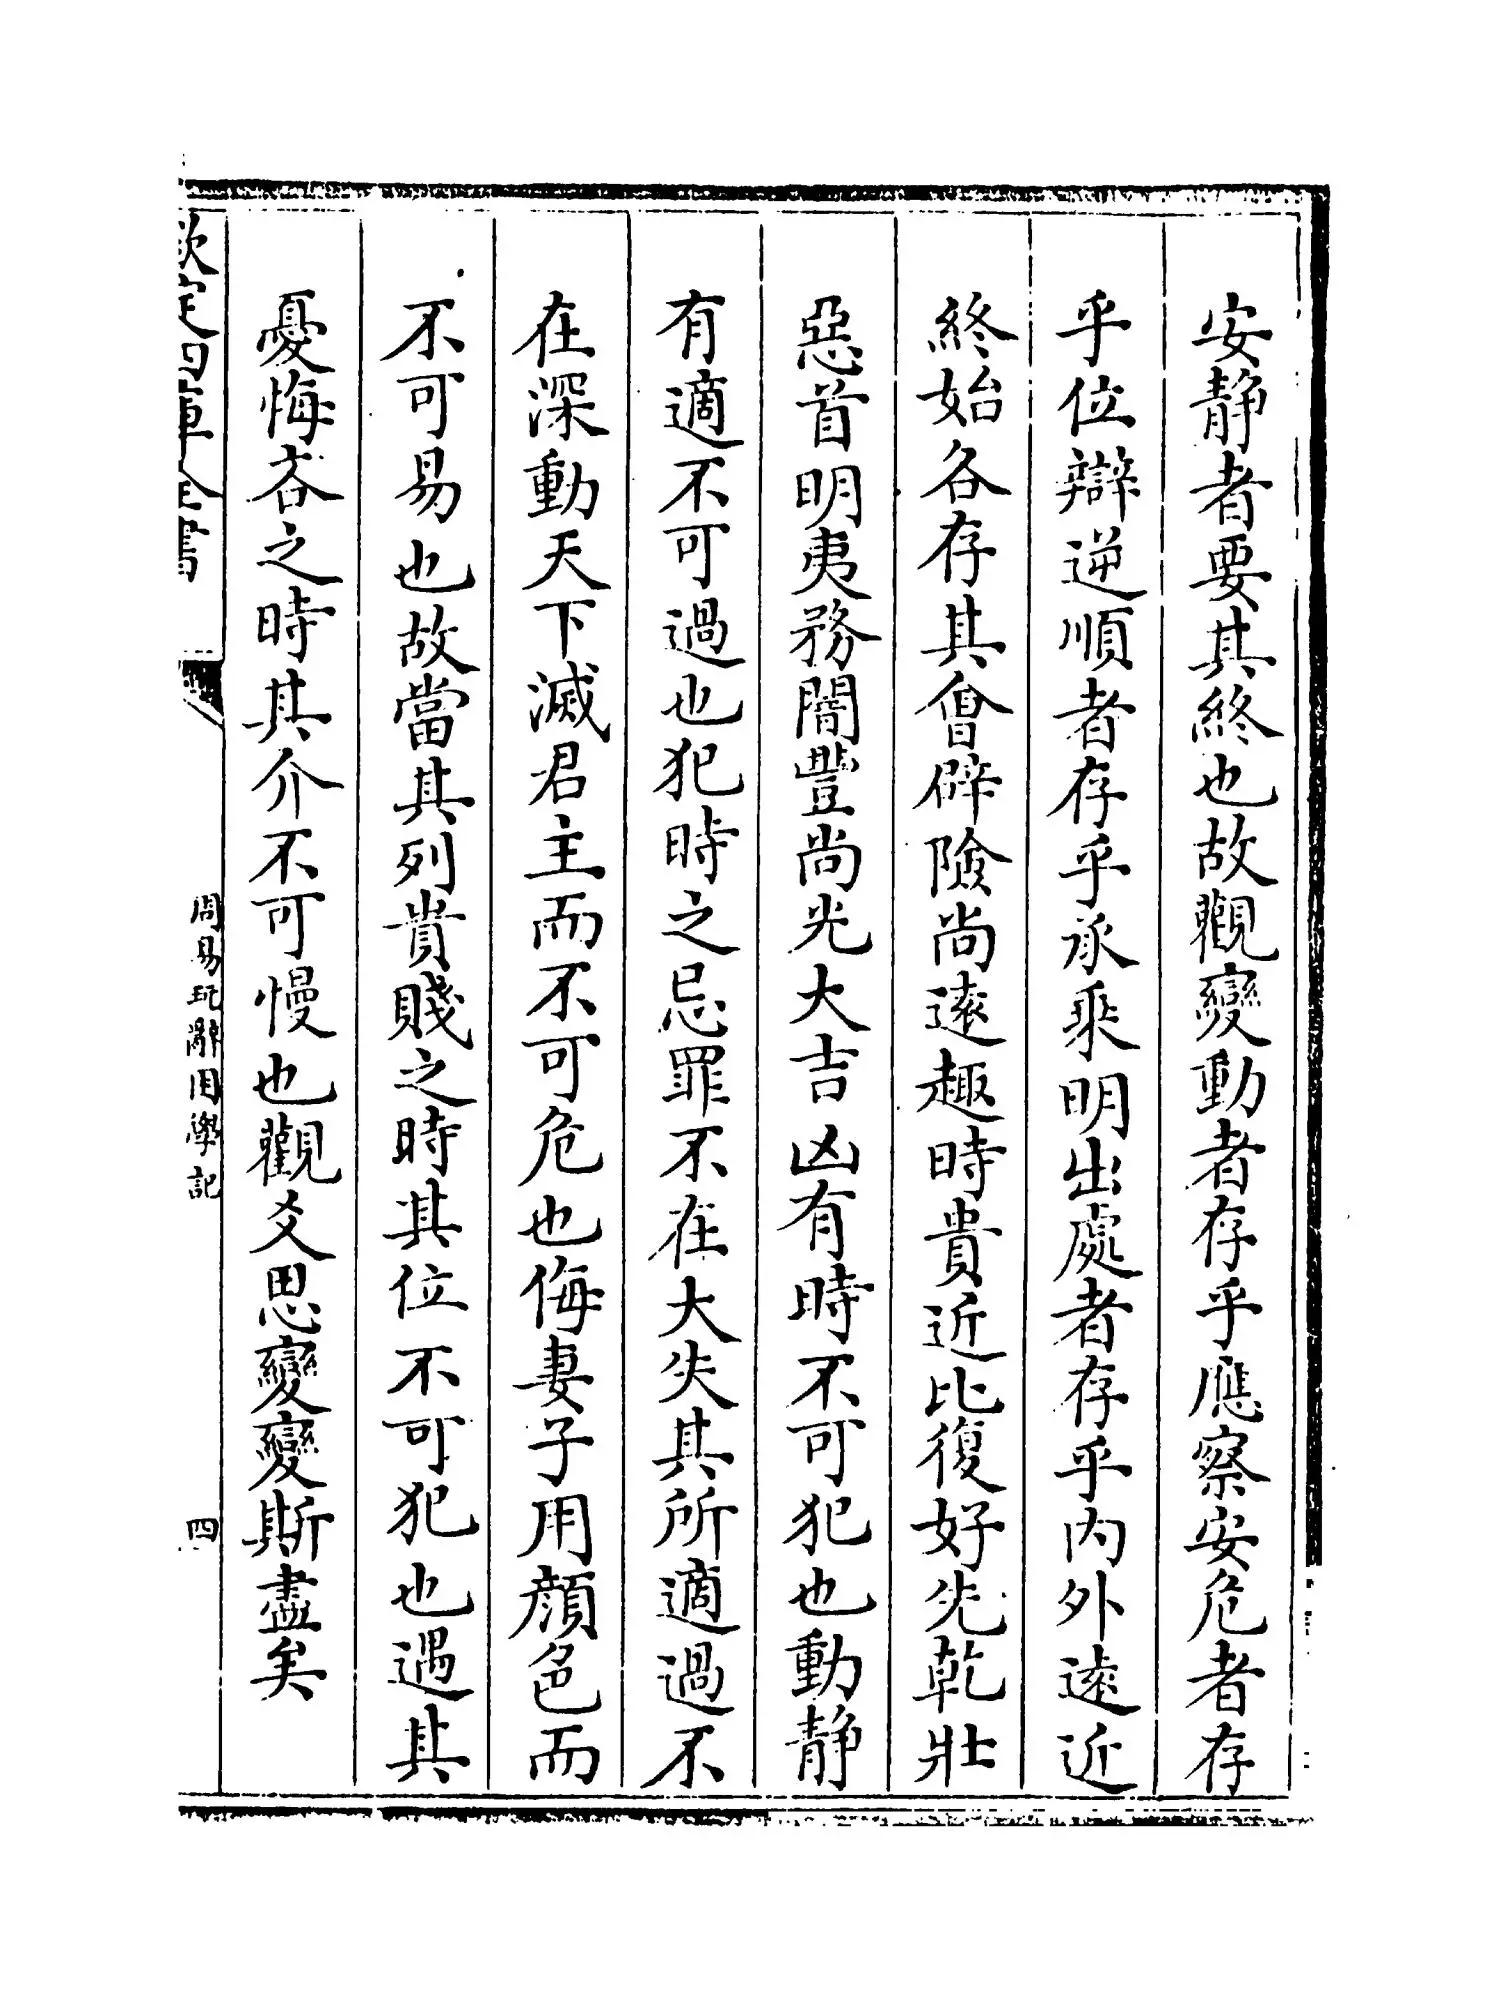 安静者要其終也故觀變動者存乎應察安危者存
乎位辯逆順者存乎承乘明出處者存乎内外逺近
終始各存其會辟險尚逺趣時貴近比復好先乾壯
惡首明夷務闇豐尚光大吉凶有時不可犯也動静
有適不可過也犯時之忌罪不在大失其所適過不
在深動天下滅君主而不可危也侮妻子用顔色而
不可易也故當其列貴賤之時其位不可犯也遇其
憂悔吝之時其介不可慢也觀爻思變變斯盡矣
欽定四庫全書
周易玩辭困學記
四